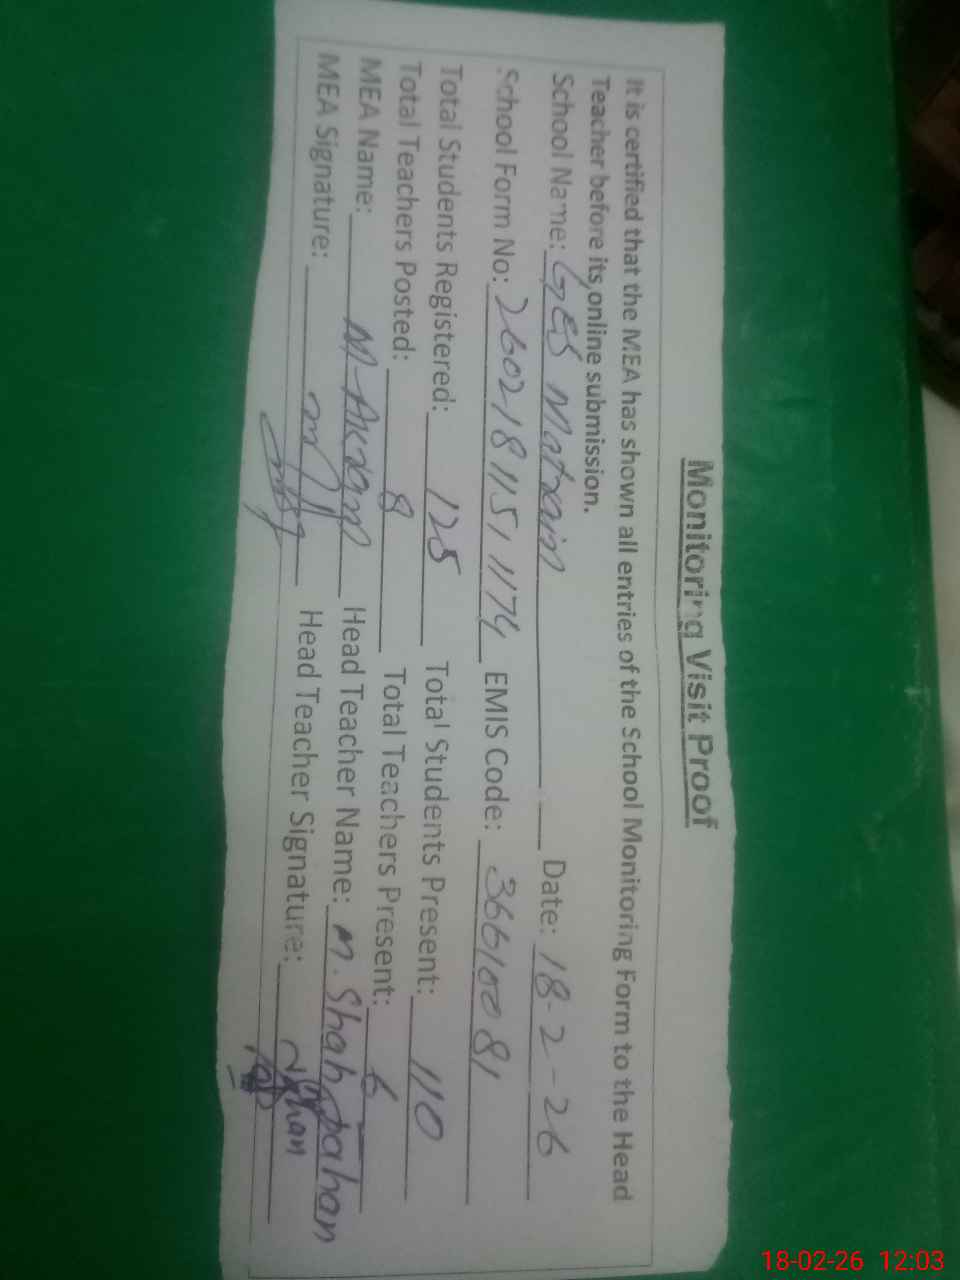 Monitoring Visit Proof
It is certified that the MEA has shown all entries of the School Monitoring Form to the Head
Teacher before its online submission.
School Name: GES Date: 18-2-26
School Form No: 26021811511174 EMIS Code: 36610081
Total Students Registered: 125 Total Students Present: 110
Total Teachers Posted: 8 Total Teachers Present: 6
MEA Name: M-Akram Head Teacher Name: M. Shah Jahan
MEA Signature: Head Teacher Signature:
18-02-26 12:03